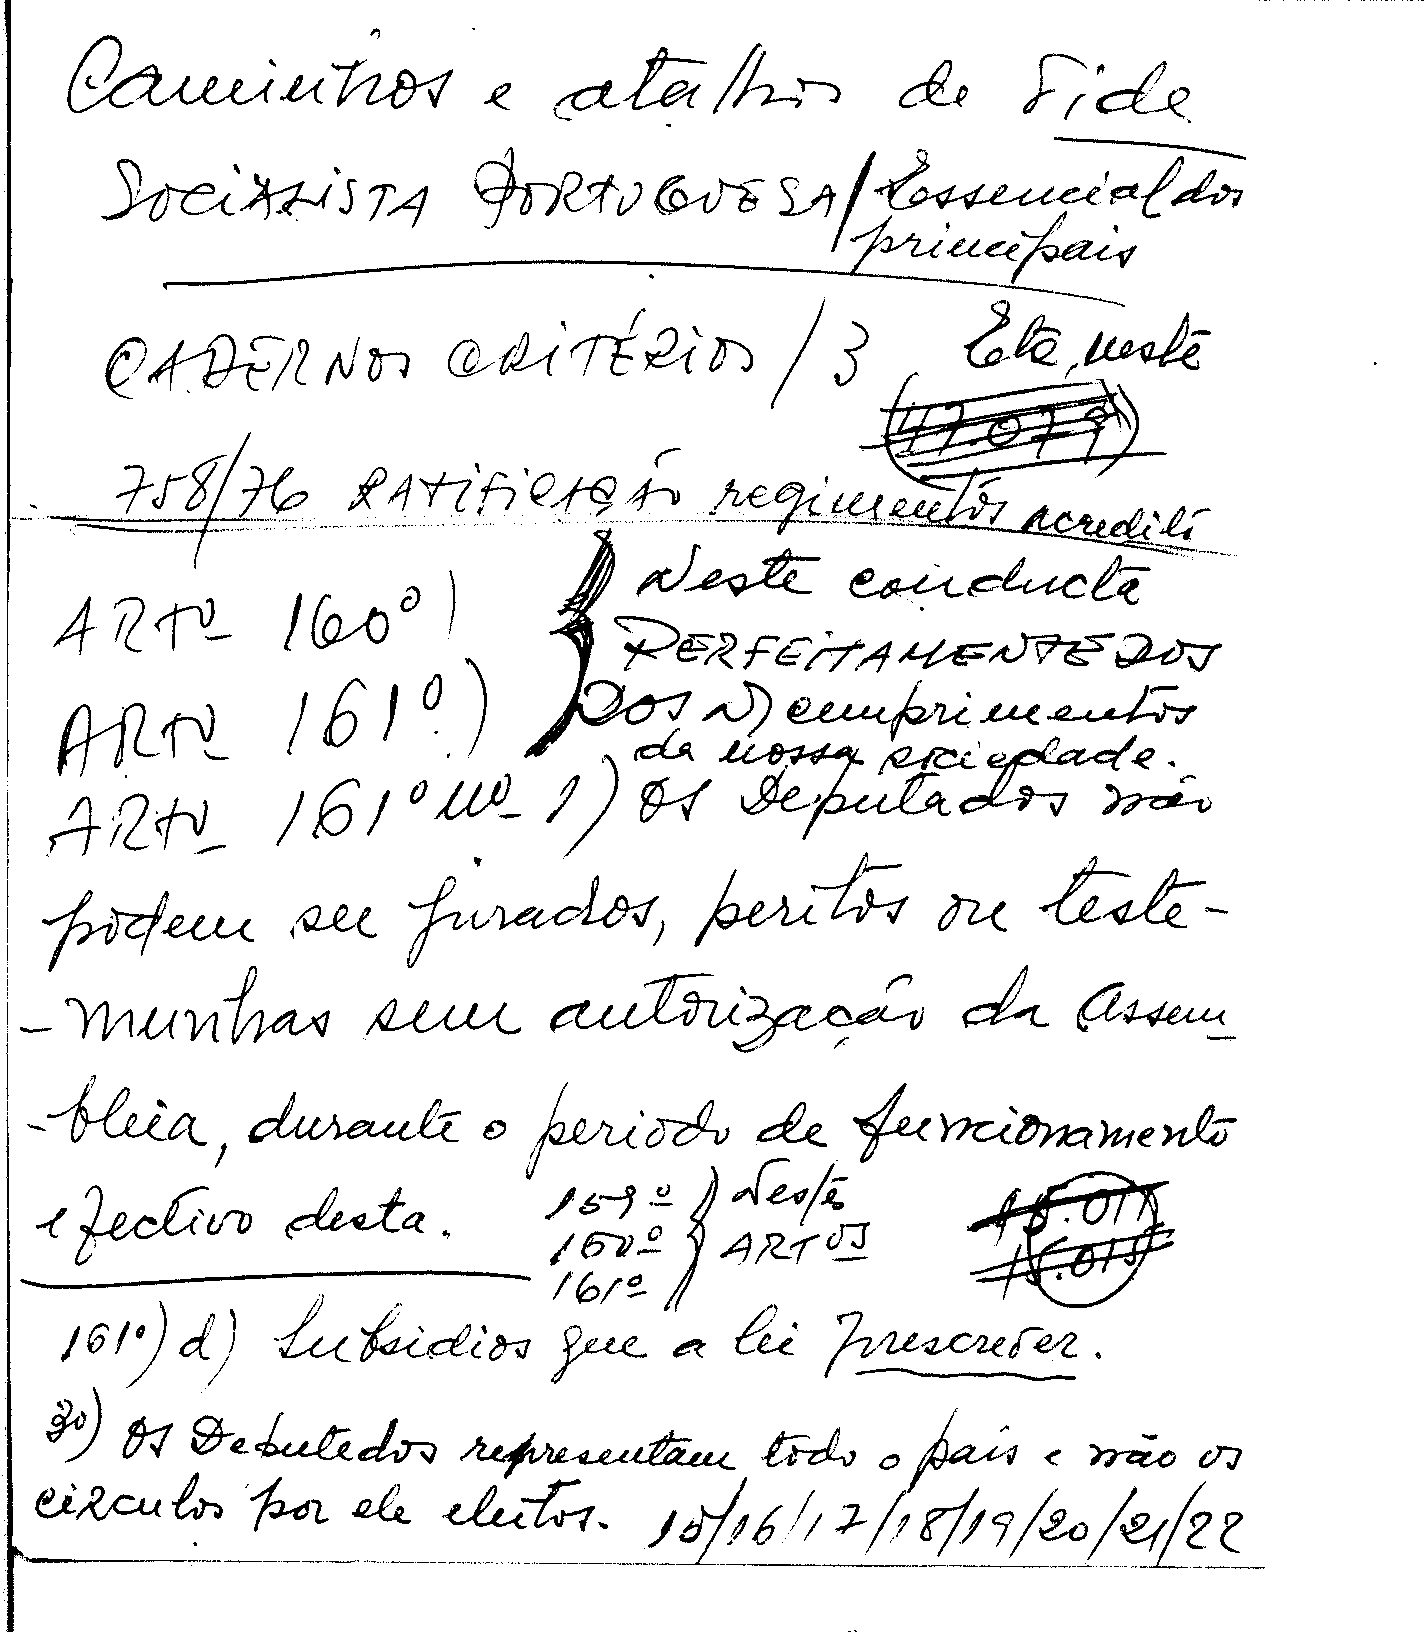 Caminhos e atalhos de Vide
SOCIALISTA PORTUGUESA / Essencial dos
principais
CADERNOS CRITÉRIOS / 3 Etè, neste
(47.079)
758/76 RATIFICAÇÃO regimentos acredito
ARTº 160º) Neste conducta
PERFEITAMENTE DOS
ARTº 161º.) DOS N) cumprimentos
da nossa sociedade.
ARTº 161º nº 1) OS Deputados não
podem ser jurados, peritos ou teste-
-munhas sem autorização da Assem-
-bleia, durante o periodo de funcionamento
efectivo desta. 159º Neste
160º ARTOS 15.011
161º 15.015
161º) d) Subsidios que a lei prescrever.
3º) OS Deputados representam todo o país e não os
circulos por ele eleitos. 15/16/17/18/19/20/21/22